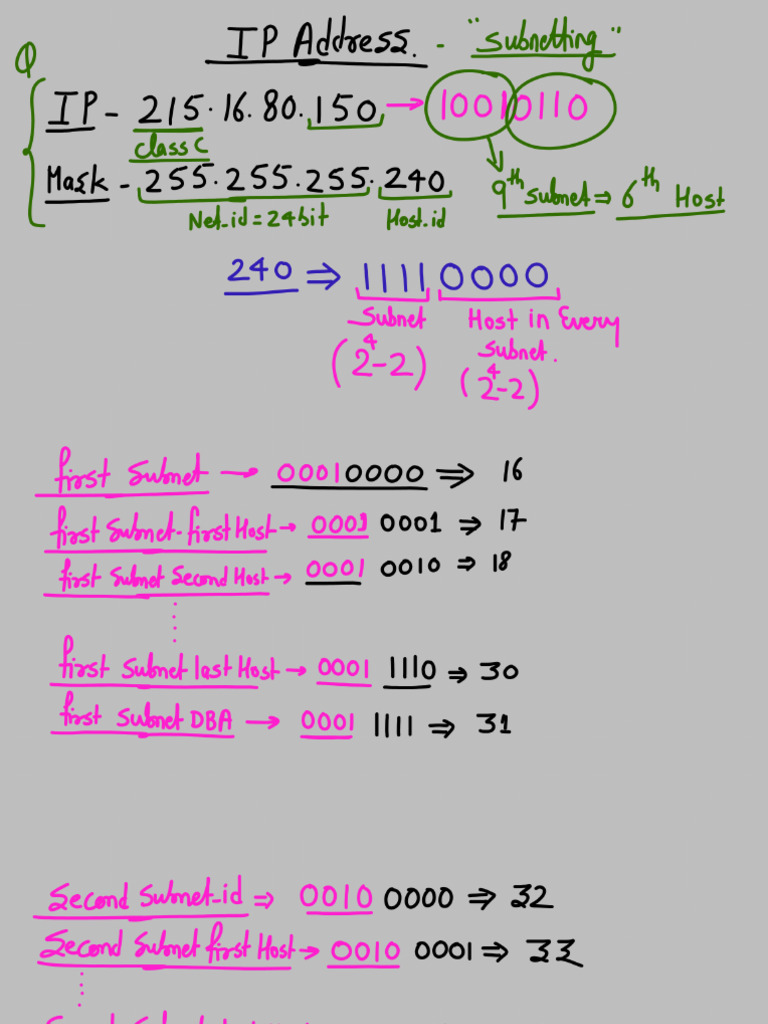 IP Address. - "Subnetting"
Q
IP - 215.16.80.150 → 10010110
class C
Mask - 255.255.255.240
9th Subnet ⇒ 6th Host
Net_id = 24bit Host_id
240 ⇒ 11110000
Subnet Host in Every
Subnet.
(2^4-2) (2^4-2)
first Subnet → 00010000 ⇒ 16
first Subnet-first Host → 0001 0001 ⇒ 17
first Subnet Second Host → 0001 0010 ⇒ 18
first Subnet last Host → 0001 1110 ⇒ 30
first Subnet DBA → 0001 1111 ⇒ 31
Second Subnet_id ⇒ 0010 0000 ⇒ 32
Second Subnet first Host → 0010 0001 ⇒ 33